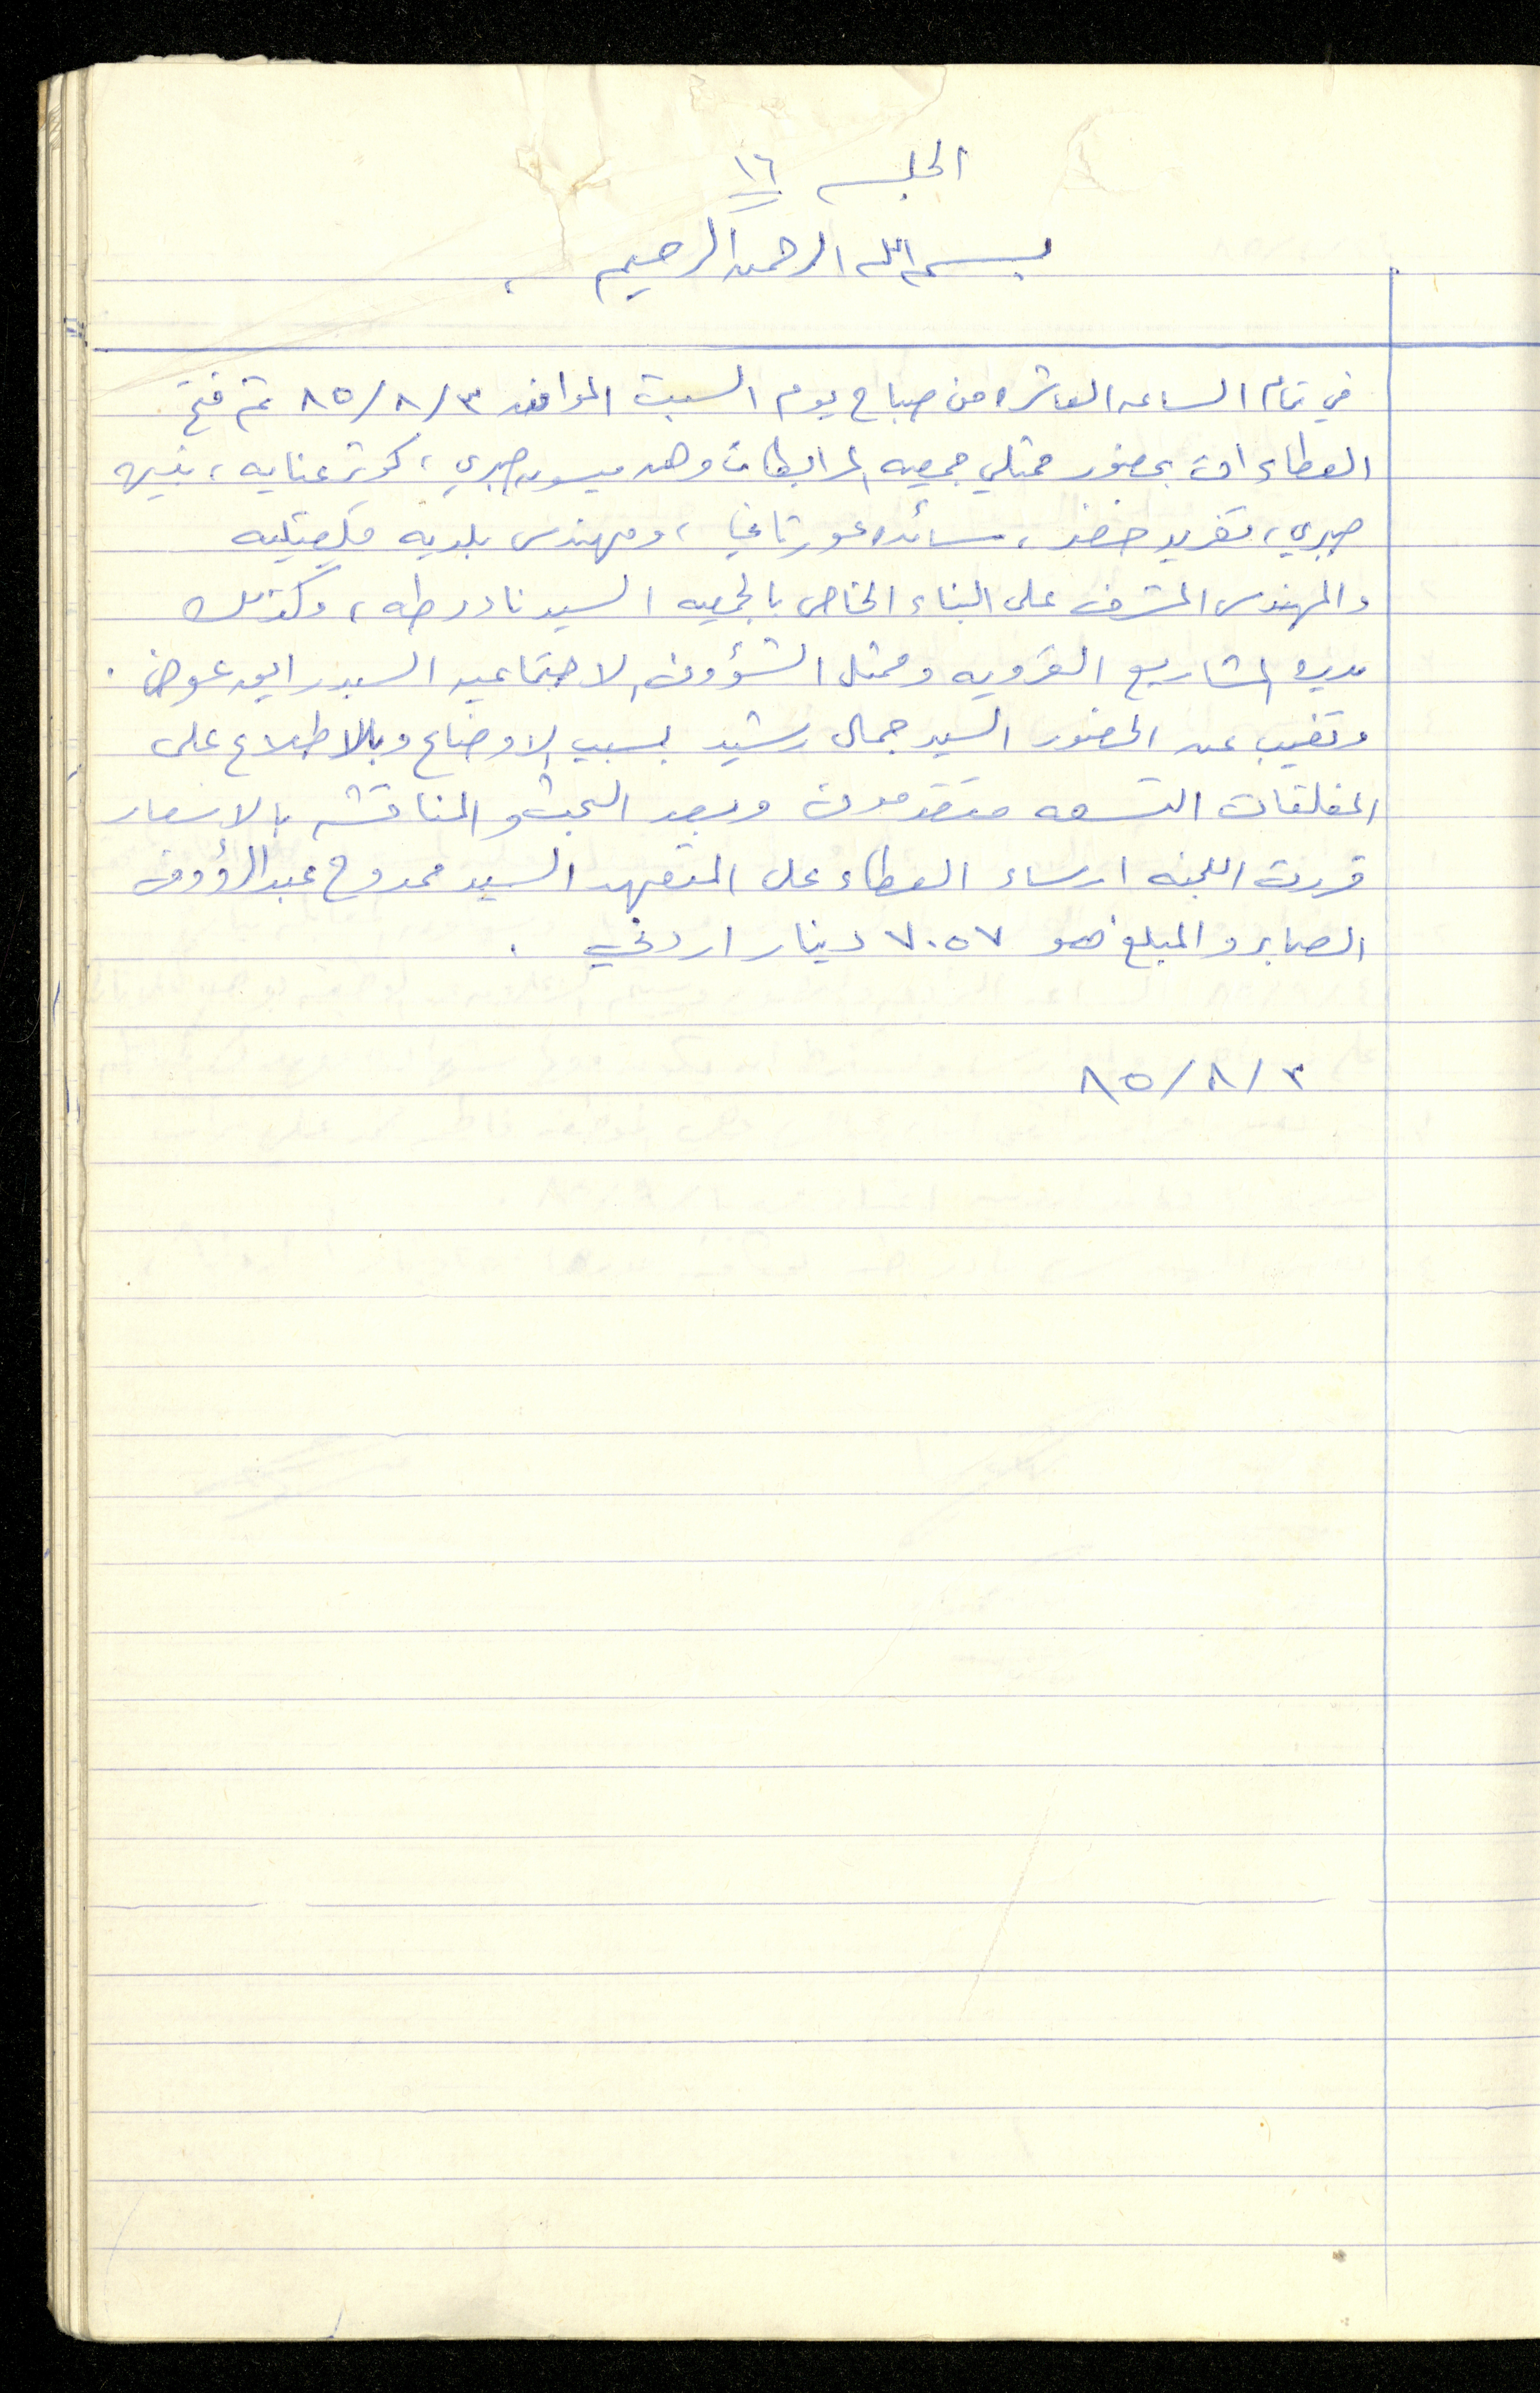 الجلسه ١٦
بسم الله الرحمن الرحيم
في تمام الساعه العاشره من صباح يوم السبت الموافق ٨٥/٨/٣ تم فتح
العطاءات بحضور ممثلي جمعيه المرابطات وهم ميسون صبري ، كوثر عنايه ، نبيهه
صبري ، تغريد خضر ، سائده عورتاني ، ومهندس بلديه قلقيليه
والمهندس المشرف على البناء الخاص بالجمعيه السيد نادر طه ، وكذلك
مديره المشاريع القرويه وممثل الشؤون الاجتماعيه السيد رابع عوض .
وتغيب عن الحضور السيد جمال رشيد بسبب الاوضاع وبالاطلاع على
المغلقات التسعه متقدمون وبعد البحث والمناقشه بالاسعار
قررت اللجنه ارساء العطاء على المتعهد السيد ممدوح عبد الرؤوف
الصابر والمبلغ هو ٧٠٥٧ دينار اردني .
٨٥/٨/٣